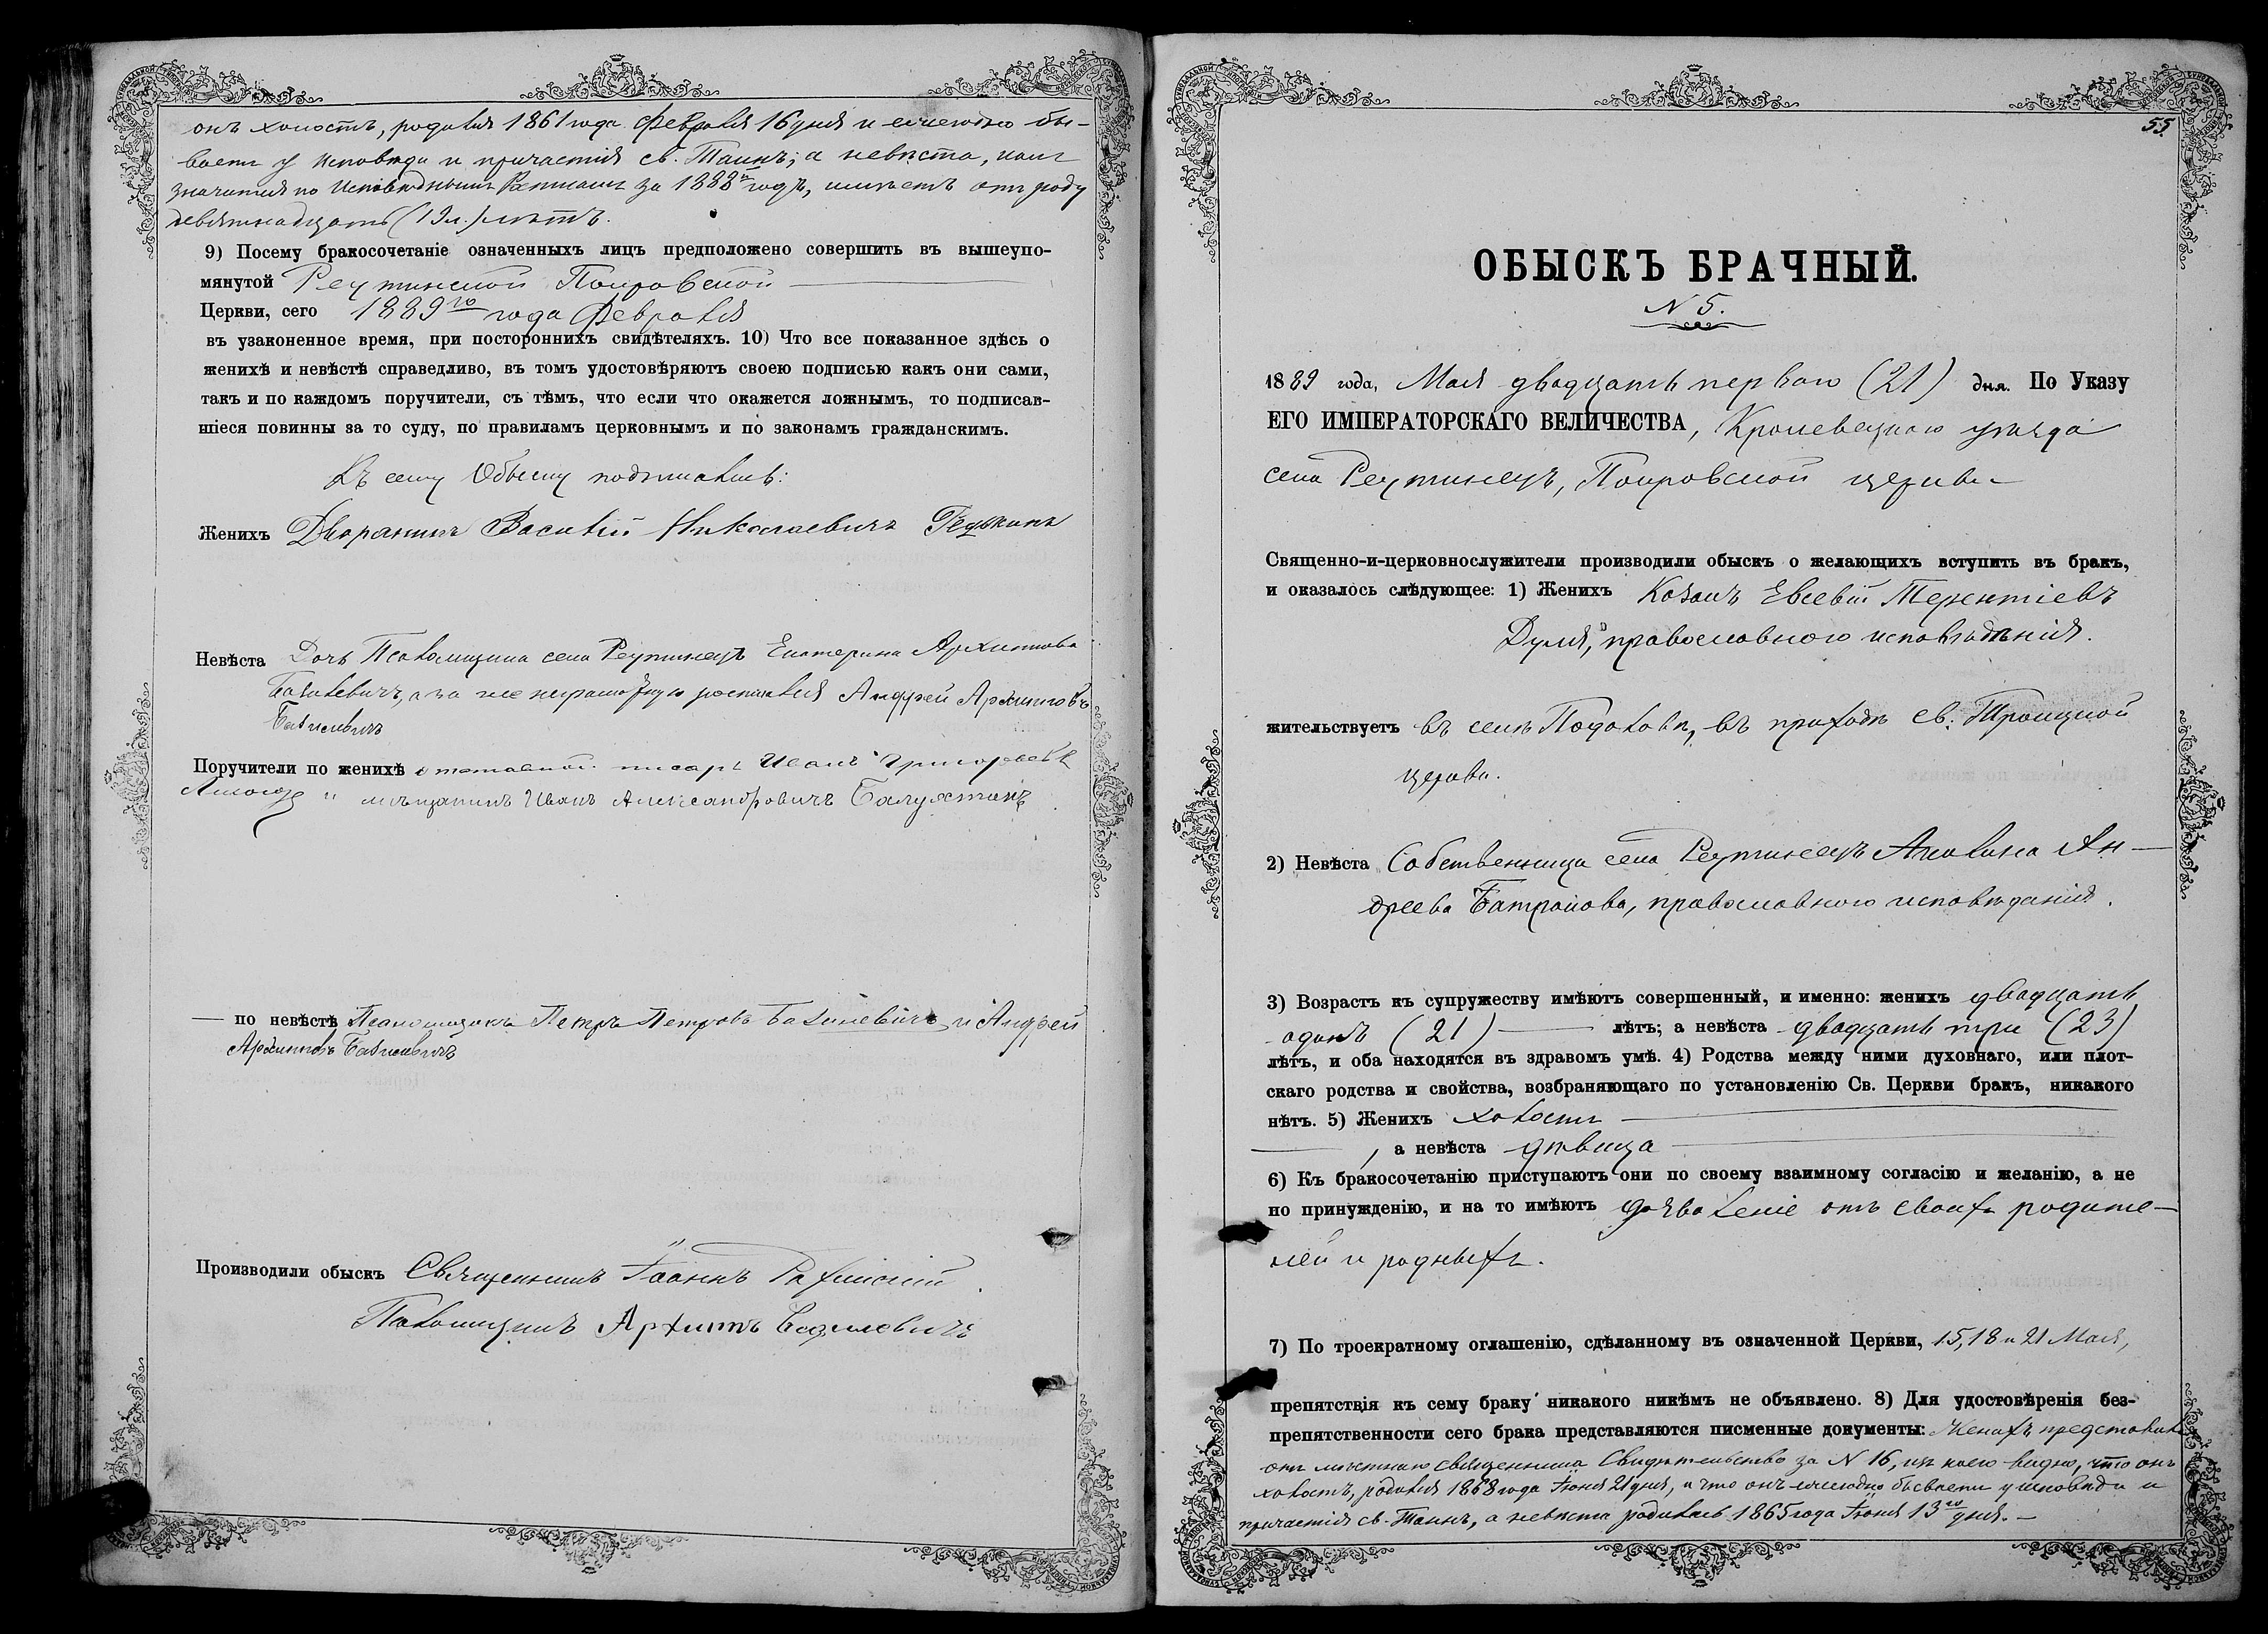 онъ холостъ, родился 1861 года Февраля 16 дня и ежегодно бы-
ваетъ у исповѣди и причастія св. Таинъ; а невѣста, какъ
значится по Исповѣднымъ Росписямъ за 1888й годъ, имѣетъ отъ роду
девятнадцать (19 л.) лѣтъ.
9) Посему бракосочетаніе означенныхъ лицъ предположено совершить въ вышеупо-
мянутой Реутинской Покровской
Церкви, сего 1889го года Февраля
въ узаконенное время, при постороннихъ свидѣтеляхъ. 10) Что все показанное здѣсь о
женихѣ и невѣстѣ справедливо, въ томъ удостовѣряютъ своею подписью какъ они сами,
такъ и по каждомъ поручители, съ тѣмъ, что если что окажется ложнымъ, то подписав-
шіеся повинны за то суду, по правиламъ церковнымъ и по законамъ гражданскимъ.
Къ сему Обыску подписались:
Женихъ Дворянинъ Василій Николаевичъ
Невѣста Дочь Псаломщика села Реутинецъ Екатерина Архиппова
Базилевичъ, а за нее неграмотную росписался Андрей Архипповъ
Базилевичъ
Поручители по женихѣ отставной писарь Иванъ Григорьевъ
и мѣщанинъ Иванъ Александровичъ
— по невѣстѣ Псаломщикъ Петръ Петровъ Базилевичъ и Андрей
Архипповъ Базилевичъ
Производили обыскъ Священникъ Іоаннъ
Псаломщикъ Архипъ Базилевичъ
55
ОБЫСКЪ БРАЧНЫЙ.
N 5.
1889 года, Мая двадцать перваго (21) дня. По Указу
ЕГО ИМПЕРАТОРСКАГО ВЕЛИЧЕСТВА, Кролевецкаго уѣзда
села Реутинецъ, Покровской церкви
Священно-и-церковнослужители производили обыскъ о желающихъ вступить въ бракъ,
и оказалось слѣдующее: 1) Женихъ Козакъ Евсевій Терентіевъ
Дуля, православнаго исповѣданія.
жительствуетъ въ селѣ Подоловѣ, въ приходѣ св. Троицкой
церкви.
2) Невѣста Собственница села Реутинецъ Акилина Ан-
дреева Батракова, православнаго исповѣданія.
3) Возрастъ къ супружеству имѣютъ совершенный, и именно: женихъ двадцать
одинъ (21) лѣтъ; а невѣста двадцать три (23)
лѣтъ, и оба находятся въ здравомъ умѣ. 4) Родства между ними духовнаго, или плот-
скаго родства и свойства, возбраняющаго по установленію Св. Церкви бракъ, никакого
нѣтъ. 5) Женихъ холостъ
, а невѣста дѣвица
6) Къ бракосочетанію приступаютъ они по своему взаимному согласію и желанію, а не
но принужденію, и на то имѣютъ дозволеніе отъ своихъ родите-
лей и родныхъ.
7) По троекратному оглашенію, сдѣланному въ означенной Церкви, 15, 18 и 21 Мая,
препятствія къ сему браку никакого никѣмъ не объявлено. 8) Для удостовѣренія без-
препятственности сего брака представляются писменные документы: Женихъ представилъ
отъ мѣстнаго священника Свидѣтельство за N 16, изъ коего видно, что онъ
холостъ, родился 1868 года Іюня 21 дня, и что онъ ежегодно бываетъ у исповѣди и
причастія св. Таинъ, а невѣста родилась 1865 года Іюня 13го дня. —